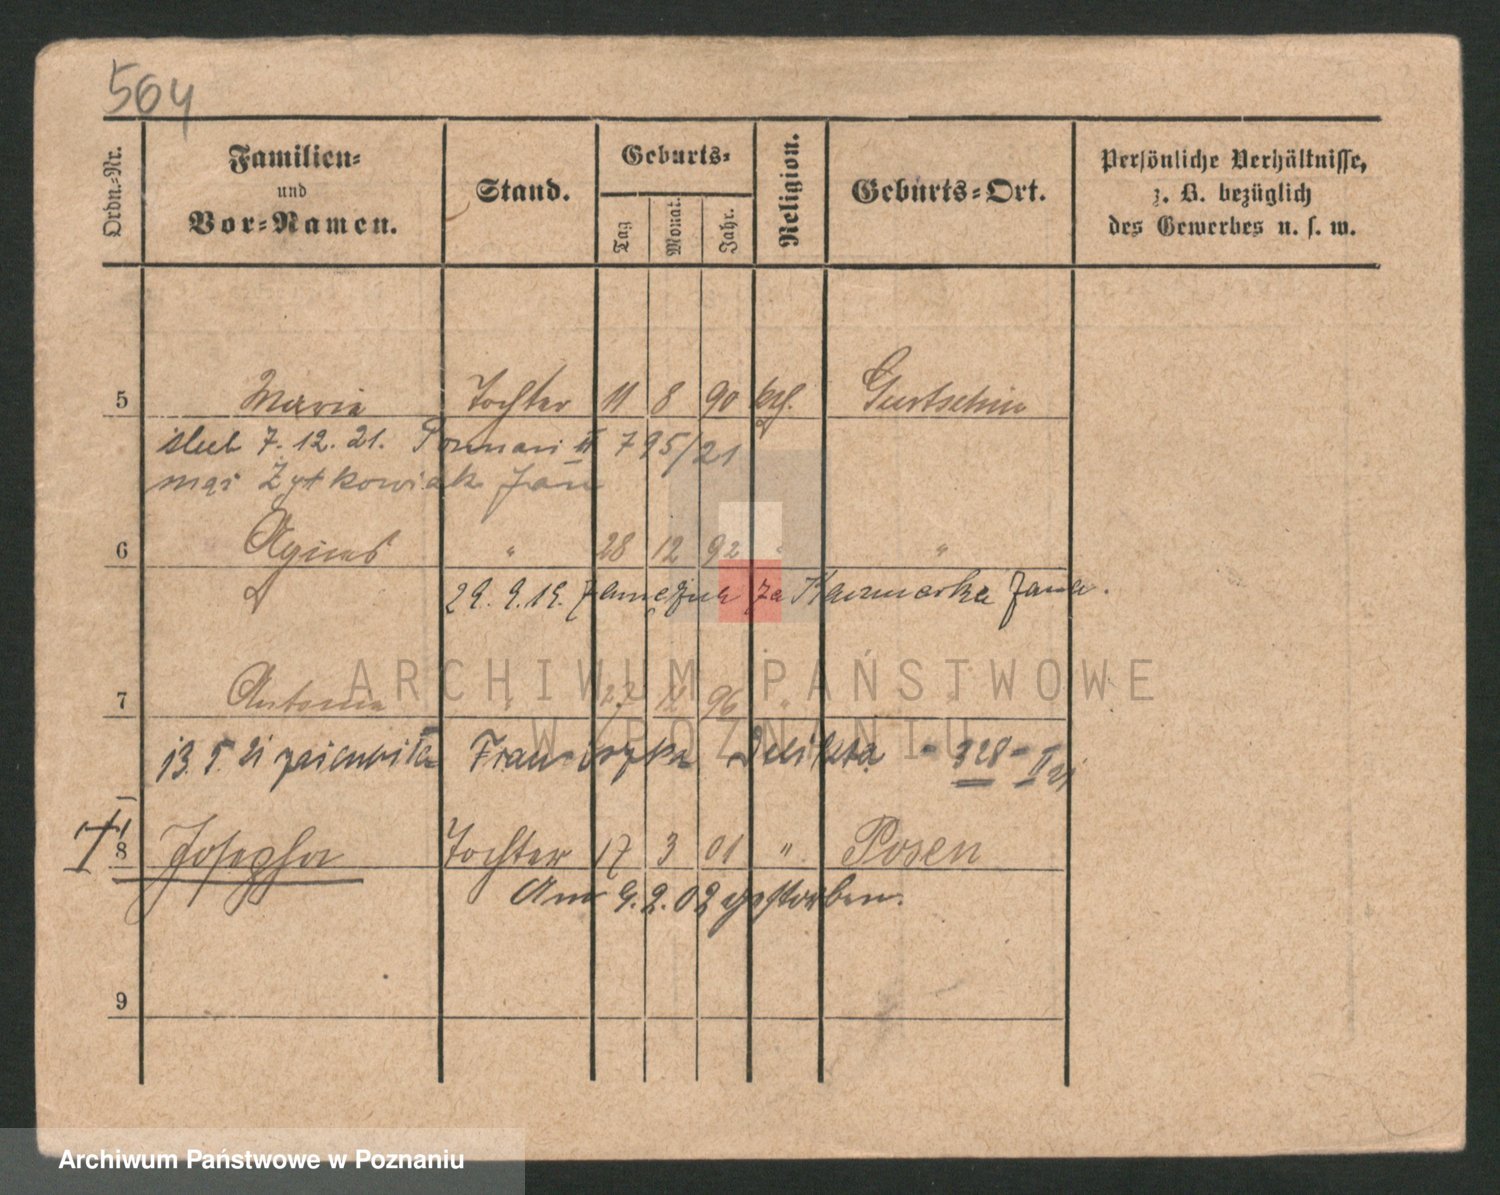 564
Ordn.-Nr.
Familien-
und
Vor-Namen.
Stand.
Geburts-
Tag
Monat.
Jahr.
Religion.
Geburts-Ort.
Persönliche Verhältnisse,
z. B. bezüglich
des Gewerbes u. s. w.
5 Maria Tochter 11 8 90 kth. Gurtschin
ślub 7. 12. 21. Poznań II 795/21
mąż Żytkowiak Jan
6 Agnes " 28 12 92 " "
29. 9. 19. zamężna za Kaczmarka Jana.
7 Antonia " 11 96 "
13. 5. 21 Franciszka - 328 - II 21
8 Josepha Tochter 17 3 01 " Posen
Am 9. 2. 02 gestorben.
9
ARCHIWUM PAŃSTWOWE
W POZNANIU
Archiwum Państwowe w Poznaniu